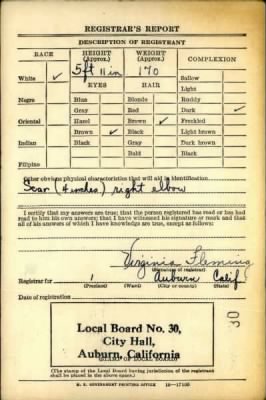 REGISTRAR'S REPORT
DESCRIPTION OF REGISTRANT
RACE HEIGHT (Approx.) WEIGHT (Approx.) COMPLEXION
White ✓ 5 ft 11 in 170 Sallow
EYES HAIR Light
Negro Blue Blonde Ruddy
Gray Red Dark ✓
Oriental Hazel Brown ✓ Freckled
Brown ✓ Black Light brown
Indian Black Gray Dark brown
Bald Black
Filipino
Other obvious physical characteristics that will aid in identification
Scar (4 inches) right elbow
I certify that my answers are true; that the person registered has read or has had
read to him his own answers; that I have witnessed his signature or mark and that
all of his answers of which I have knowledge are true, except as follows:
Virginia Fleming
(Signature of registrar)
Registrar for 1 Auburn Calif
(Precinct) (Ward) (City or county) (State)
Date of registration
Local Board No. 30,
City Hall,
Auburn, California
(STAMP OF LOCAL BOARD)
(The stamp of the Local Board having jurisdiction of the registrant
shall be placed in the above space.)
U. S. GOVERNMENT PRINTING OFFICE 16—17105
30